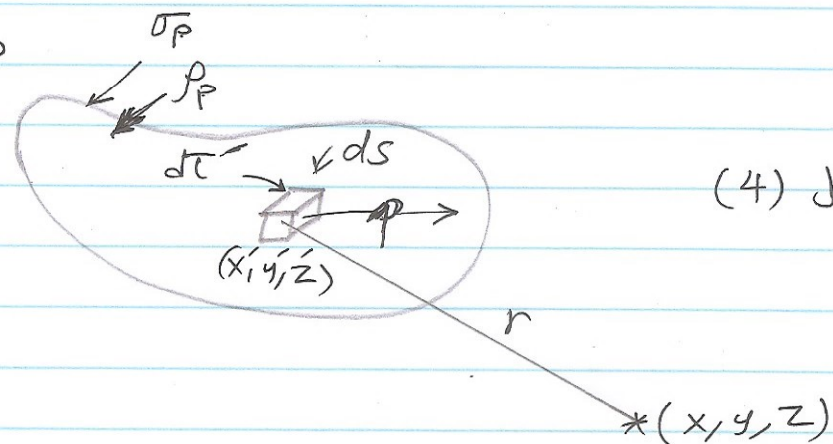 σp
ρp
dτ′
ds
(4)
p
(x′, y′, z′)
r
*(x, y, z)